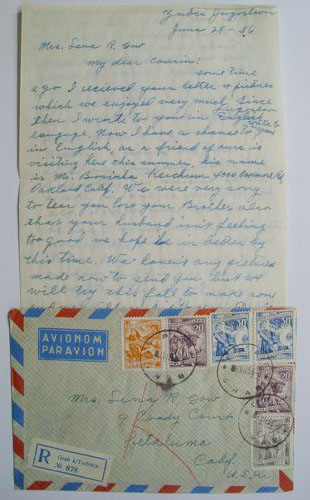 Zubci Jugoslavia
June 28 - 56
Mrs. Lena R. Gow
My dear Cousin:
some time
ago I recieved your letter & pictures
which we enjoyed very much. Since
then I wrote to you in Jugoslav
language. Now I have a chance to write to you
in English, as a friend of ours is
visiting here this summer, his name
is Mr. Kercheum 4000
Oakland Calif. We were very sorry
to hear you lost your Brother also
that your husband isn't feeling
too good we hope he is better by
this time. We haven't any pictures
made now to send you, but we
will try this fall to make some
AVIONOM
PAR AVION
20
30
30
20
Mrs. Lena R. Gow
9 Coady Court
Petaluma
Calif.
U.S.A
R
Grab k/Trebinca
№ 876